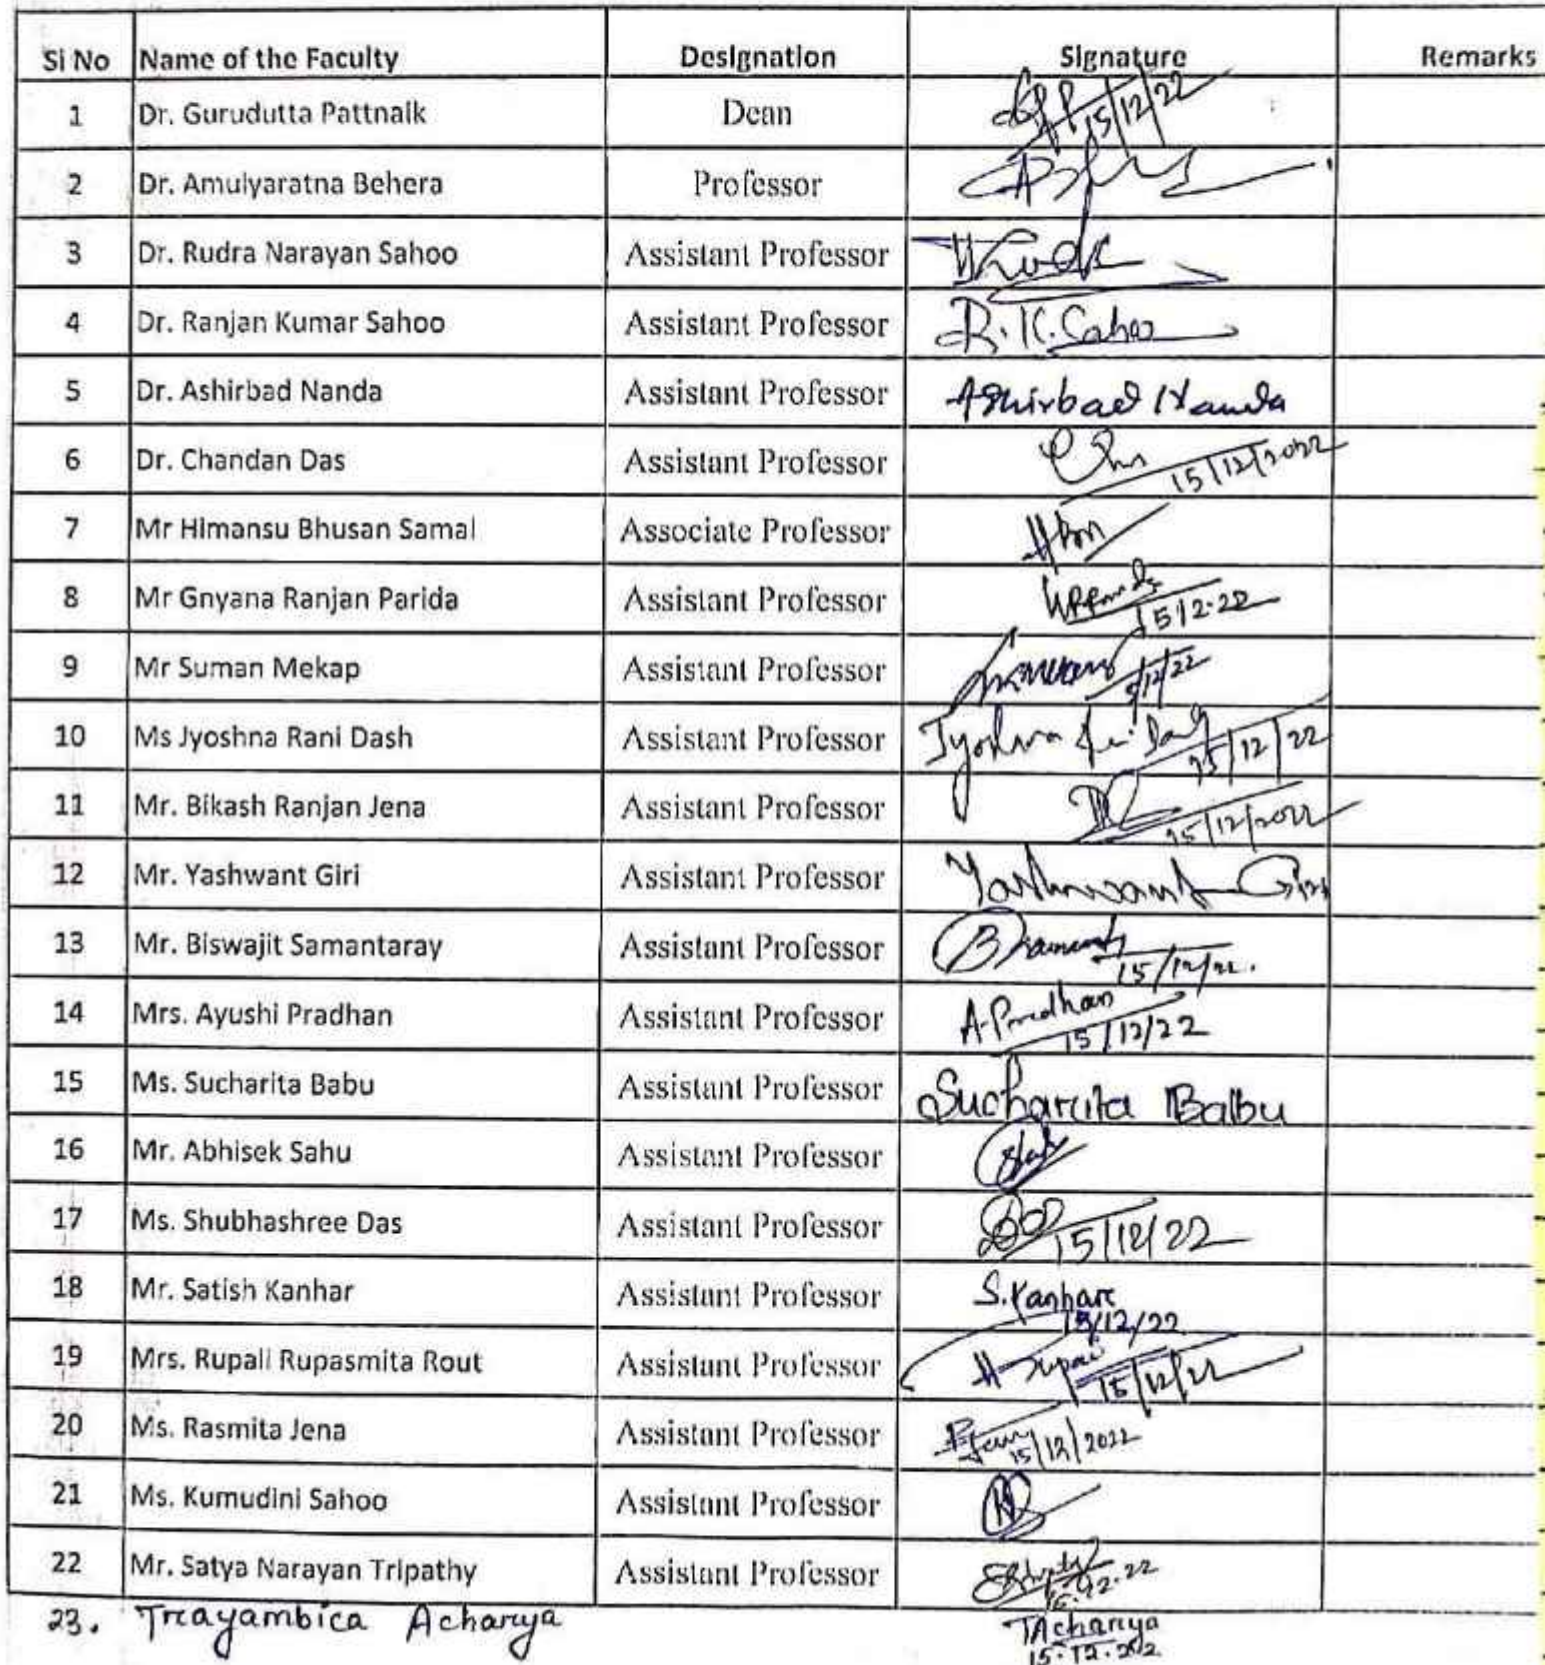 Sl No Name of the Faculty Designation Signature Remarks
1 Dr. Gurudutta Pattnaik Dean 15/12/22
2 Dr. Amulyaratna Behera Professor
3 Dr. Rudra Narayan Sahoo Assistant Professor
4 Dr. Ranjan Kumar Sahoo Assistant Professor R.K. Sahoo
5 Dr. Ashirbad Nanda Assistant Professor Ashirbad Nanda
6 Dr. Chandan Das Assistant Professor 15/12/2022
7 Mr Himansu Bhusan Samal Associate Professor
8 Mr Gnyana Ranjan Parida Assistant Professor 15/2.22
9 Mr Suman Mekap Assistant Professor
10 Ms Jyoshna Rani Dash Assistant Professor Jyoshna Dash 15/12/22
11 Mr. Bikash Ranjan Jena Assistant Professor 15/12/2022
12 Mr. Yashwant Giri Assistant Professor Yashwant Giri
13 Mr. Biswajit Samantaray Assistant Professor 15/12/22.
14 Mrs. Ayushi Pradhan Assistant Professor A.Pradhan
15/12/22
15 Ms. Sucharita Babu Assistant Professor Sucharita Babu
16 Mr. Abhisek Sahu Assistant Professor
17 Ms. Shubhashree Das Assistant Professor 15/12/22
18 Mr. Satish Kanhar Assistant Professor S.Kanhar
15/12/22
19 Mrs. Rupali Rupasmita Rout Assistant Professor 15/12/22
20 Ms. Rasmita Jena Assistant Professor RJena 15/12/2022
21 Ms. Kumudini Sahoo Assistant Professor
22 Mr. Satya Narayan Tripathy Assistant Professor 15.12.22
23. Trayambica Acharya TAcharya
15.12.202